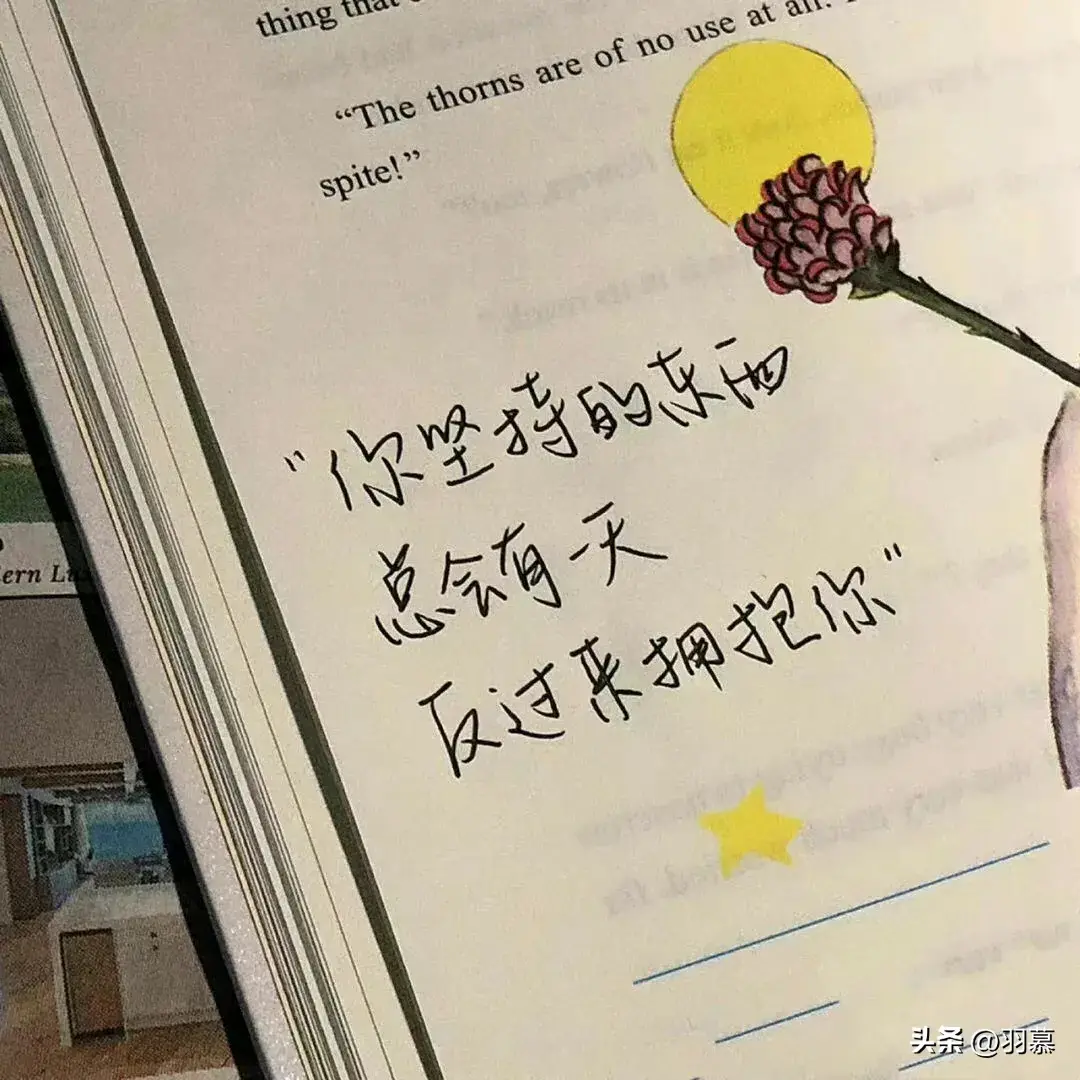 thing that
“The thorns are of no use at all.
spite!”
“你坚持的东西
总会有一天
反过来拥抱你”
头条 @羽慕